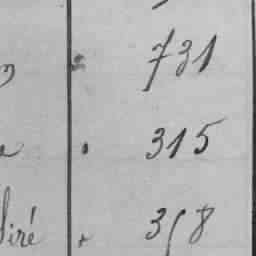 731
315
siré 358